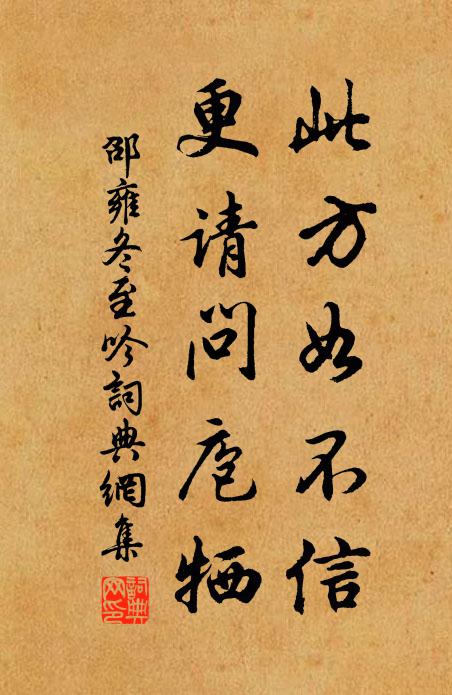 此方如不信
更请问庖牺
邵雍冬至吟詞典網集
詞典網印